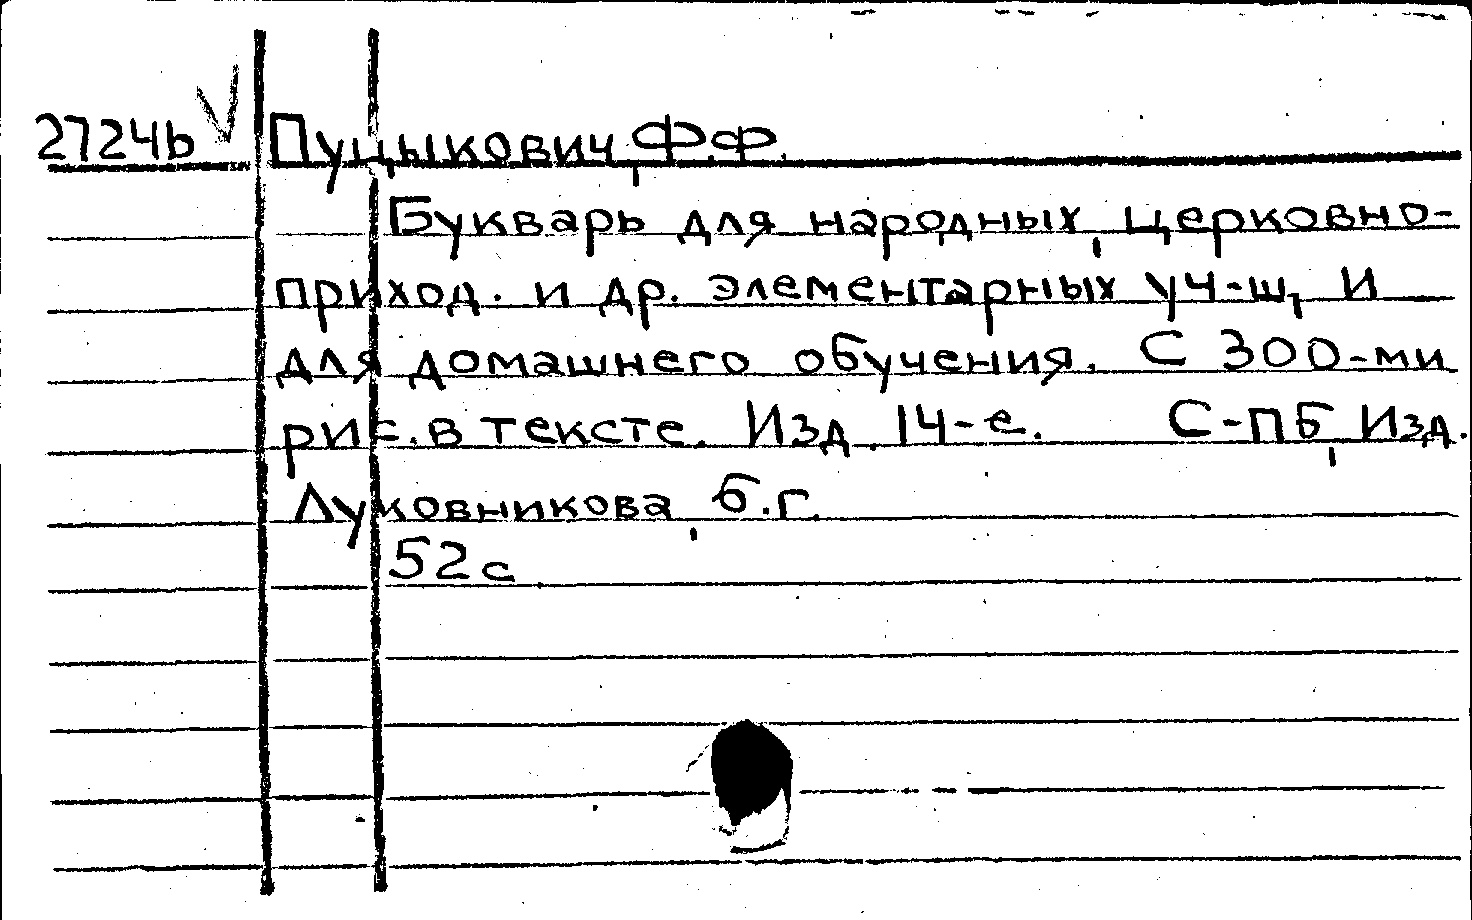 2724b V Пуцыкович, Ф.Ф.
Букварь для народных, церковно-
приход. и др. элементарных уч-щ, и
для домашнего обучения. С 300-ми
рис. в тексте. Изд. 14-е. С-ПБ, Изд.
Луковникова, б.г.
52 с